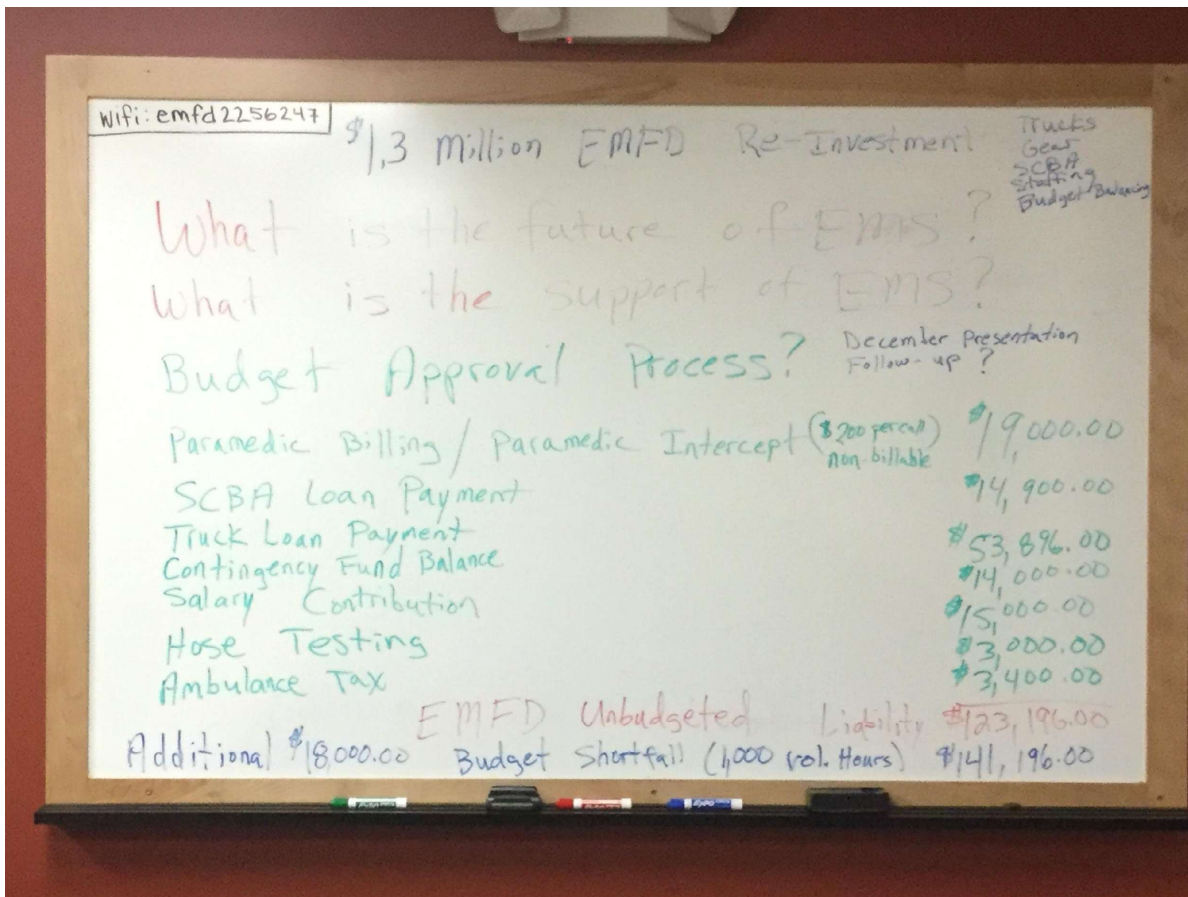 Wifi: emfd2256247
$1,3 Million EMFD Re-Investment
Trucks
Gear
SCBA
Staffing
Budget Balancing
What is the future of EMS?
What is the support of EMS?
Budget Approval Process?
December Presentation
Follow-up?
Paramedic Billing / Paramedic Intercept ($200 per call) $19,000.00
non-billable
SCBA Loan Payment $14,900.00
Truck Loan Payment $53,896.00
Contingency Fund Balance $14,000.00
Salary Contribution $15,000.00
Hose Testing $3,000.00
Ambulance Tax $3,400.00
EMFD Unbudgeted Liability $123,196.00
Additional $18,000.00 Budget Shortfall (1,000 vol. Hours) $141,196.00